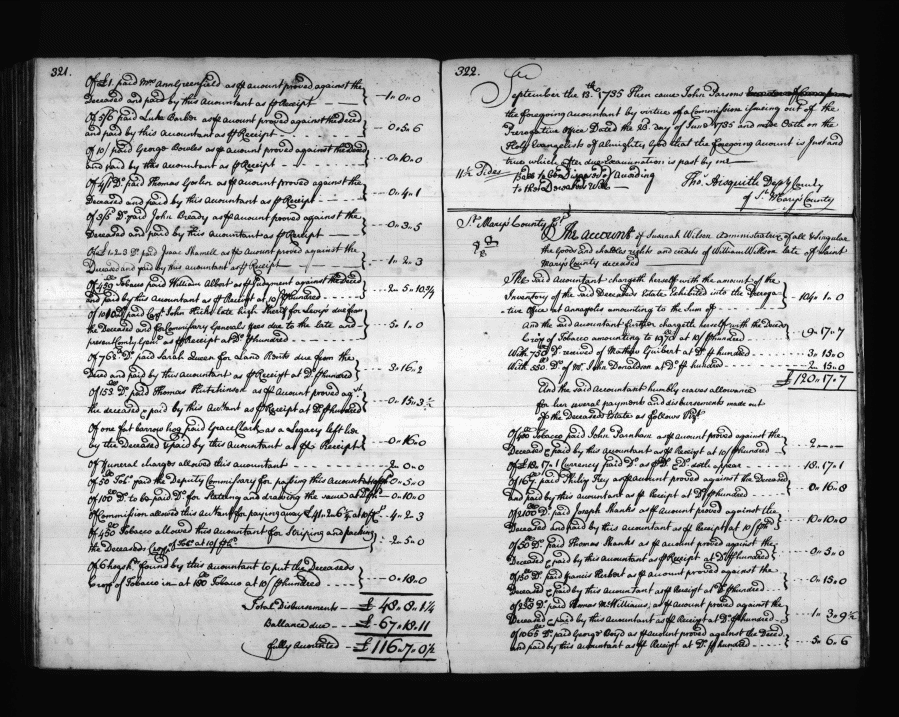 321.
Of £1. paid Mrs Ann Greenfield as ℔ amount proved against the
Deceased and paid by this Accountant as ℔ Receipt — 1.0.0
Of 5/6 paid Luke Barber as ℔ account proved against the Deced
and paid by this Accountant as ℔ Receipt — 0.5.6
Of 10/ paid George Bowles as ℔ account proved against the Deced
and paid by this Accountant as ℔ Receipt — 0.10.0
Of 4/1 Do. paid Thomas as ℔ account proved against the
Deceased and paid by this Accountant as ℔ Receipt — 0.4.1
Of 3/5 Do. paid John Bready as ℔ account proved against the
Deceased and paid by this Accountant as ℔ Receipt — 0.3.5
Of £1.2.3 Do. paid Isaac as ℔ Account proved against the
Deceased and paid by this Accountant as ℔ Receipt — 1.2.3
Of Tobacco paid William as ℔ Judgment against the Deced
and paid by this Accountant as ℔ Receipt at 10/ ℔ hundred — 2.5.10
Of 1010 paid Capt John Hicks late high Sheriff for Levys due from
the Deceased and for Commissary Generals fees due to the late and
present County as ℔ Receipt at Do. ℔ hundred — 5.1.0
Of 762 Do. paid Sarah Queen for Land Rents due from the
Deced and paid by this Accountant as ℔ Receipt at Do. ℔ hundred — 3.16.2
Of 153 Do. paid Thomas Hutchinson as ℔ account proved agst
the deceased & paid by this Accountant as ℔ Receipt at Do. ℔ hundred — 0.15.3
Of one fat barrow hog paid Grace Clark as a Legacy left her
by the Deceased & paid by this Accountant as ℔ Receipt — 0.16.0
Of Funeral charges allowed this accountant — 2.0.0
Of 50 Tobo. paid the Deputy Commissary for passing this Account — 0.5.0
Of 100 Do. to be paid Do. for Stateing and drawing the same at Do. — 0.10.0
Of Commission allowed this Accountant for paying away £41.2.6 at 10 ℔ Ct. — 4.2.3
Of 450 Tobacco allowed this Accountant for Striping and packing
the Deceaseds Crop of Tobo. at 10/ ℔ Ct. — 2.5.0
Of 6 hogshs. found by this accountant to put the Deceaseds
Crop of Tobacco in at 180 Tobacco at 10/ ℔ hundred — 0.18.0
Total Disbursements — £ 48.8.1¼
Ballance due — £ 67.18.11
fully accounted — £ 116.7.0½
322.
September the 13th 1735 Then came John Parsons
the foregoing accountant by virtue of a Commission issuing out of the
Prerogative Office Dated the 28 day of June 1735 and made Oath on the
Holy Evangelists of Almighty God that the foregoing Account is Just and
true which after due examination is past by me
11½ Sides
Thos. Aisquith Depty County
of St. Mary's County
St. Mary's County Sst.
The account of Susanah Wilson Administratrix of all & Singular
the Goods and chattles rights and credits of William Willson late of Saint
Mary's County deceased
The said Accountant chargeth herself with the amount of the
Inventory of the said Deceaseds Estate Exhibited into the Preroga-
-tive Office at Annapolis amounting to the Sum of — 104.1.0
And the said Accountant further chargeth herself with the Deced
Crop of Tobacco amounting to at 10/ ℔ hundred — 9.17.7
With 730 Do. received of Mathew Guibert at Do. ℔ hundred — 3.13.0
With 550 Do. of Mr. John Donaldson at Do. ℔ hundred — 2.15.0
£ 120.17.7
And the said Accountant humbly craves allowance
for her several payments and disbursements made out
of the Deceaseds Estate as follows Vizt.
Of 400 Tobacco paid John Parnham as ℔ account proved against the
Deceased & paid by this accountant as ℔ Receipt at 10/ ℔ hundred — 2
Of £18.17.1 Currency paid Do. as ℔ Do. doth appear — 18.17.1
Of 167 paid Philip Key as ℔ account proved against the Deceased
and paid by this accountant as ℔ Receipt at Do. ℔ hundred — 0.16.8
Of 2100 Do. paid Joseph Shanks as ℔ account proved against the
Deceased and paid by this accountant as ℔ Receipt at 10/ ℔ hd. — 10.10.0
Of 60 Do. paid Thomas Shanks as ℔ account proved against the
Deceased & paid by this accountant as ℔ Receipt at Do. ℔ hundred
Of 150 Do. paid Francis Herbert as ℔ account proved against the
Deceased & paid by this Accountant as ℔ Receipt at Do. ℔ hundred — 0.15.0
Of Do. paid Thomas McWilliams as ℔ account proved against the
Deceased & paid by this Accountant as ℔ Receipt at Do. ℔ hundred — 1.3.9½
Of 1065 Do. paid George Boyd as ℔ account proved against the Deced
and paid by this accountant as ℔ Receipt at Do. ℔ hundred — 5.6.6